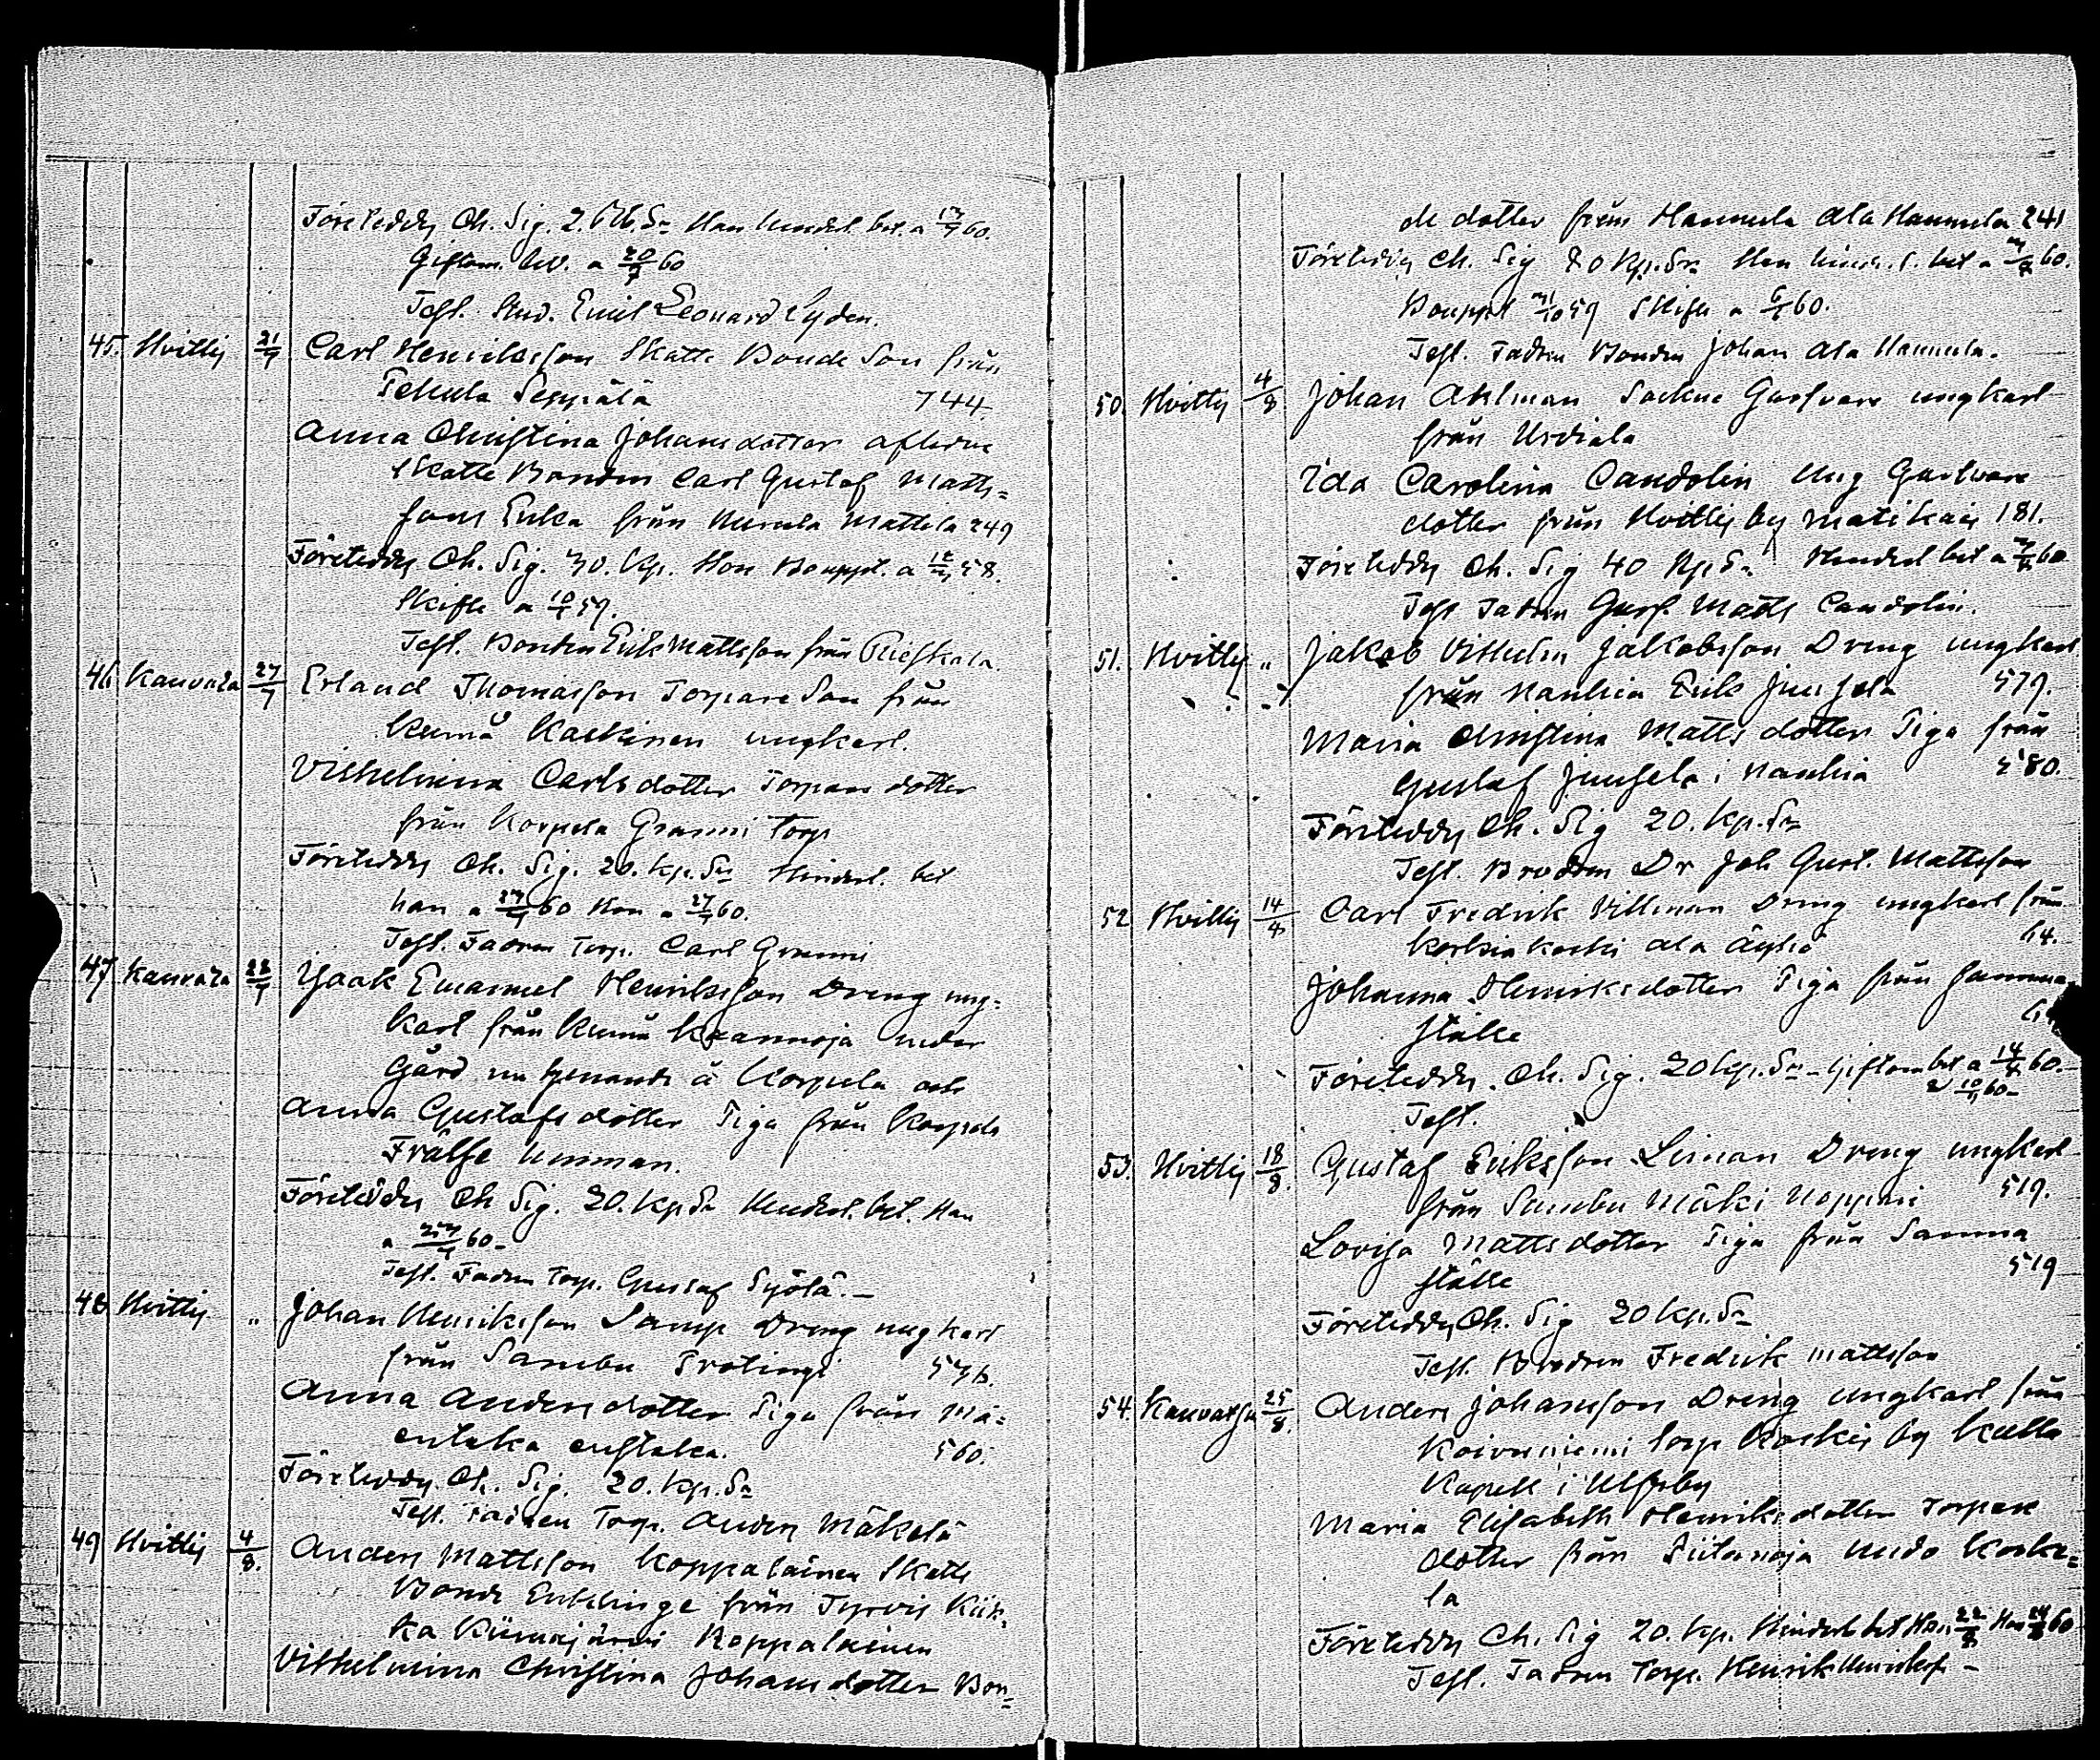 Företeddes Ch. Sig. 2. Rb. Sr Han Hinderl. bet. a 60.
Giftom. bev. a 20/7 60
Test. Stud. Emil Leonard Lyden.
45. Hvittis 21/7 Carl Henriksson Skatte Bonde Son från
Pehula Seppälä 744
Anna Christina Johansdotter afledne
Skatte Bonden Carl Gustaf Matts=
sons Enka från Mattela 249
Företeddes Ch. Sig. 30. Kp. Hon Bouppt. a 58.
Skifte a 59.
Test. Bonden Erik Mattsson från
46 Kauvatsa 27/7 Erland Thomasson Torpare Son från
Kumå Kaskinen ungkarl.
Vilhelmina Carlsdotter Torpare dotter
från Korpela Granni Torp
Företeddes Ch. Sig. 20. Kp. Sr Hinderl. bet
han a 60 Hon a 27/7 60.
Test. Fadren Torp. Carl Granni
47 Kauvatsa Isaak Emanuel Henriksson Dreng ung=
karl från Kumå Kraanoja under
Gård nu tjenande å Korpela och
Anna Gustafsdotter Piga från Korpela
Frälse
Företeddes Ch Sig. 20. Kp Sr Hinderl. bet. Han
a 60-
Test. Fadren Torp. Gustaf Syötä.-
48 Hvittis „ Johan Henriksson Lamp Dreng ungkarl
från Sambu Protingi
Anna Andersdotter Piga från Mä=
entaka enstaka. 560.
Företeddes Ch. Sig. 20. Kp. Sr
Test. Fadren Torp. Anders Mäkelä
49 Hvittis 4/8. Anders Mattsson Koppalainen Skatte
Bonde Enklinge från Tyrvis Kiik=
ka Kiimajärvi Koppalainen
Vilhelmina Christina Johansdotter Bon=
de dotter från Hannula Ala Hannula 241
Företeddes Ch. Sig 20 Kp. Sr Han hinderl. bet a 60.
Bouppt 59 Skifte a 60.
Test. Fadren Bonden Johan Ala Hannula.
50. Hvittis 4/8 Johan Ahlman Sockne Garfvare ungkarl
från Urdiala
Ida Carolina Candolin Ung Garfvare
dotter från Hvittis by Matikais 181.
Företeddes Ch. Sig 40 Kp Sr Hinderl bet a 60
Test Fadren Garf. Matts Candolin.
51. Hvittis „ Jakob Vilhelm Jakobsson Dreng ungkarl
från Nanhia Erik Junsela 579.
Maria Christina Mattsdotter Piga från
Gustaf Junsela i Nanhia 580.
Företeddes Ch. Sig 20. Kp. Sr
Test. Brodren Dr Joh Gust. Mattsson
52 Hvittis 14/8 Carl Fredrik Villman Dreng ungkarl från
Korkiakoski Ala Äyhö 64.
Johanna Henriksdotter Piga från samma
ställe
Företeddes Ch. Sig. 20 Kp. Sr - Giftom bet a 60.-
60-
Test.
53. Hvittis 18/8. Gustaf Eriksson Liman Dreng ungkarl
från Sambu Mäki Noppari 519.
Lovisa Mattsdotter Piga från Samma
ställe 519
Företeddes Ch. Sig 20 Kp. Sr
Test. Brodren Fredrik Mattsson
54. Kauvatsa 25/8. Anders Johansson Dreng ungkarl från
Koivuniemi Torp Koskis by Kulla
Kapell i Ulfsby
Maria Elisabeth Henriksdotter Torpare
dotter från Piitanoja Koske=
la
Företeddes Ch. Sig 20. Kp. Hinderl bet Han 60
Test. Fadren Torp. Henrik Henriksson -